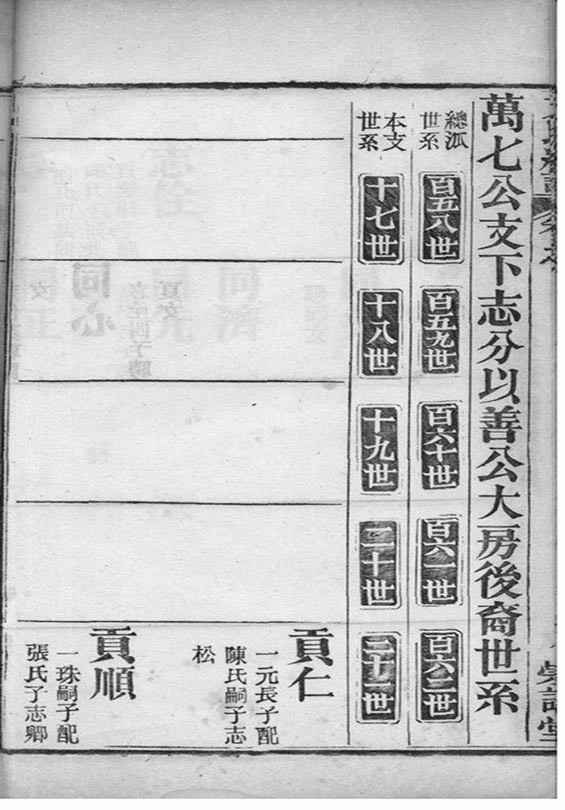 萬七公支下志分以善公大房後裔世系
總派世系
百五八世
百五九世
百六十世
百六一世
百六二世
本支世系
十七世
十八世
十九世
二十世
二十一世
貢仁
一元長子配
陳氏嗣子志
松
貢順
一珠嗣子配
張氏子志卿